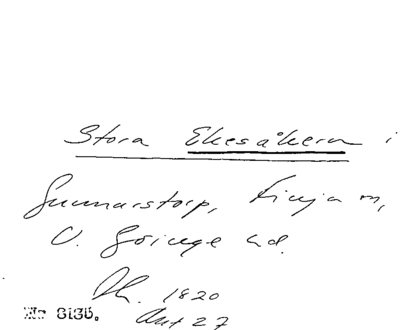 Stora Ekesåkern i
Gunnarstorp, Finja sn,
V. Göinge hd.
Dh. 1820
Akt 27
Nr 8135.